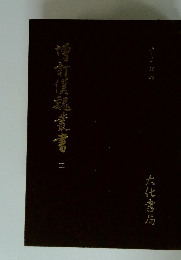 增訂漢魏叢書
二
大化書局